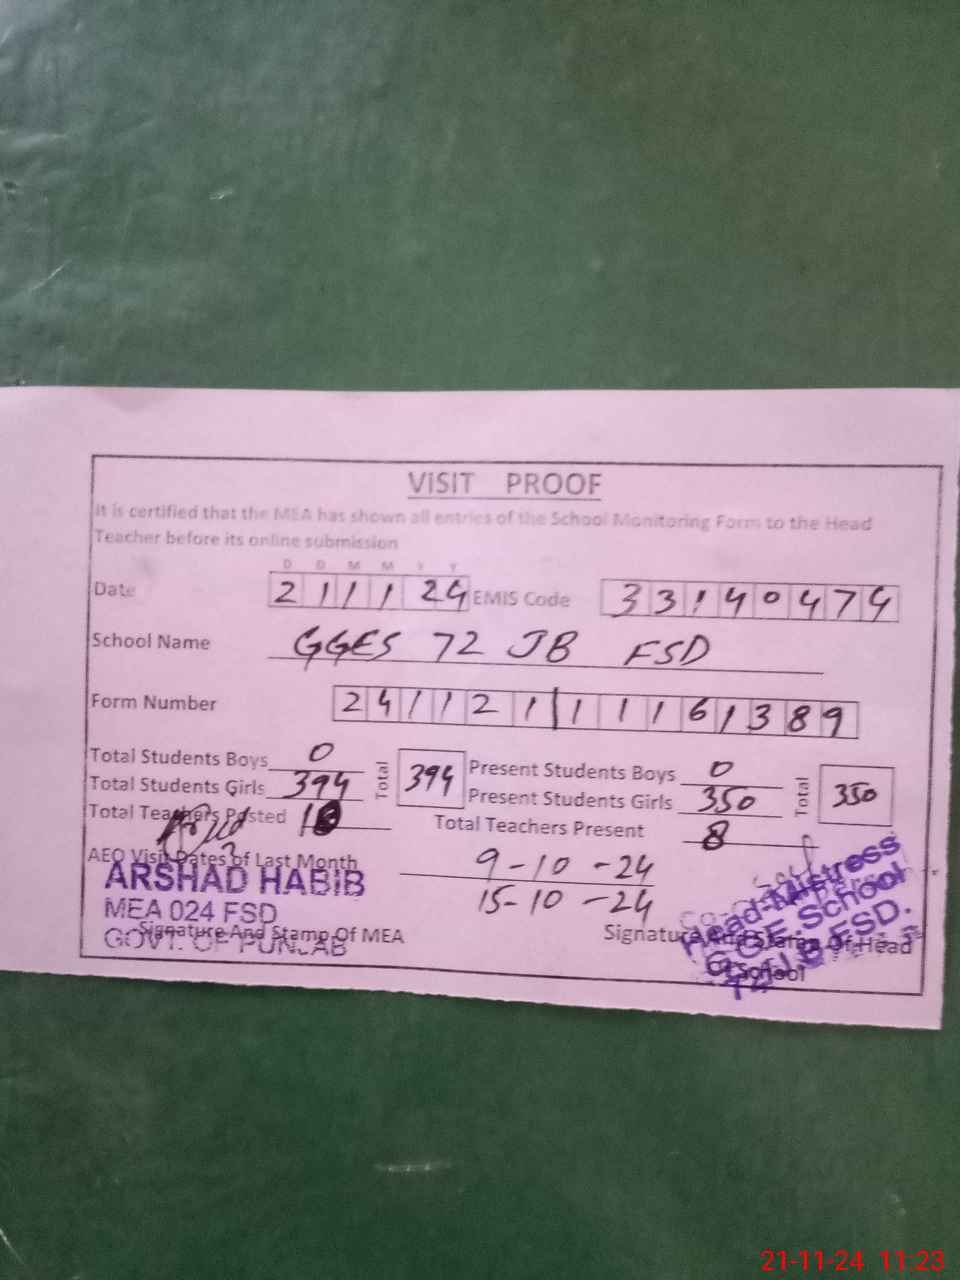 ViSIT PROOF
It is certified that the MEA has shown all entries of the School Monitoring Form to the Head
Teacher before its online submission
D D M M Y Y
Date 211124 EMIS Code 33140474
School Name GGES 72 JB FSD
Form Number
Total Students Boys 0 Total 394 Present Students Boys 0 Total 350
Total Students Girls 394 Present Students Girls 350
Total Teachers Posted Total Teachers Present 8
AEO Visit Dates of Last Month 9-10-24
15-10-24
ARSHAD HABIB
MEA 024 FSD
GOVT. OF PUNJAB
Signature And Stamp Of MEA
Signature And Stamp Of Head
Of School
Head-Mistress
School
FSD.
21-11-24 11:23